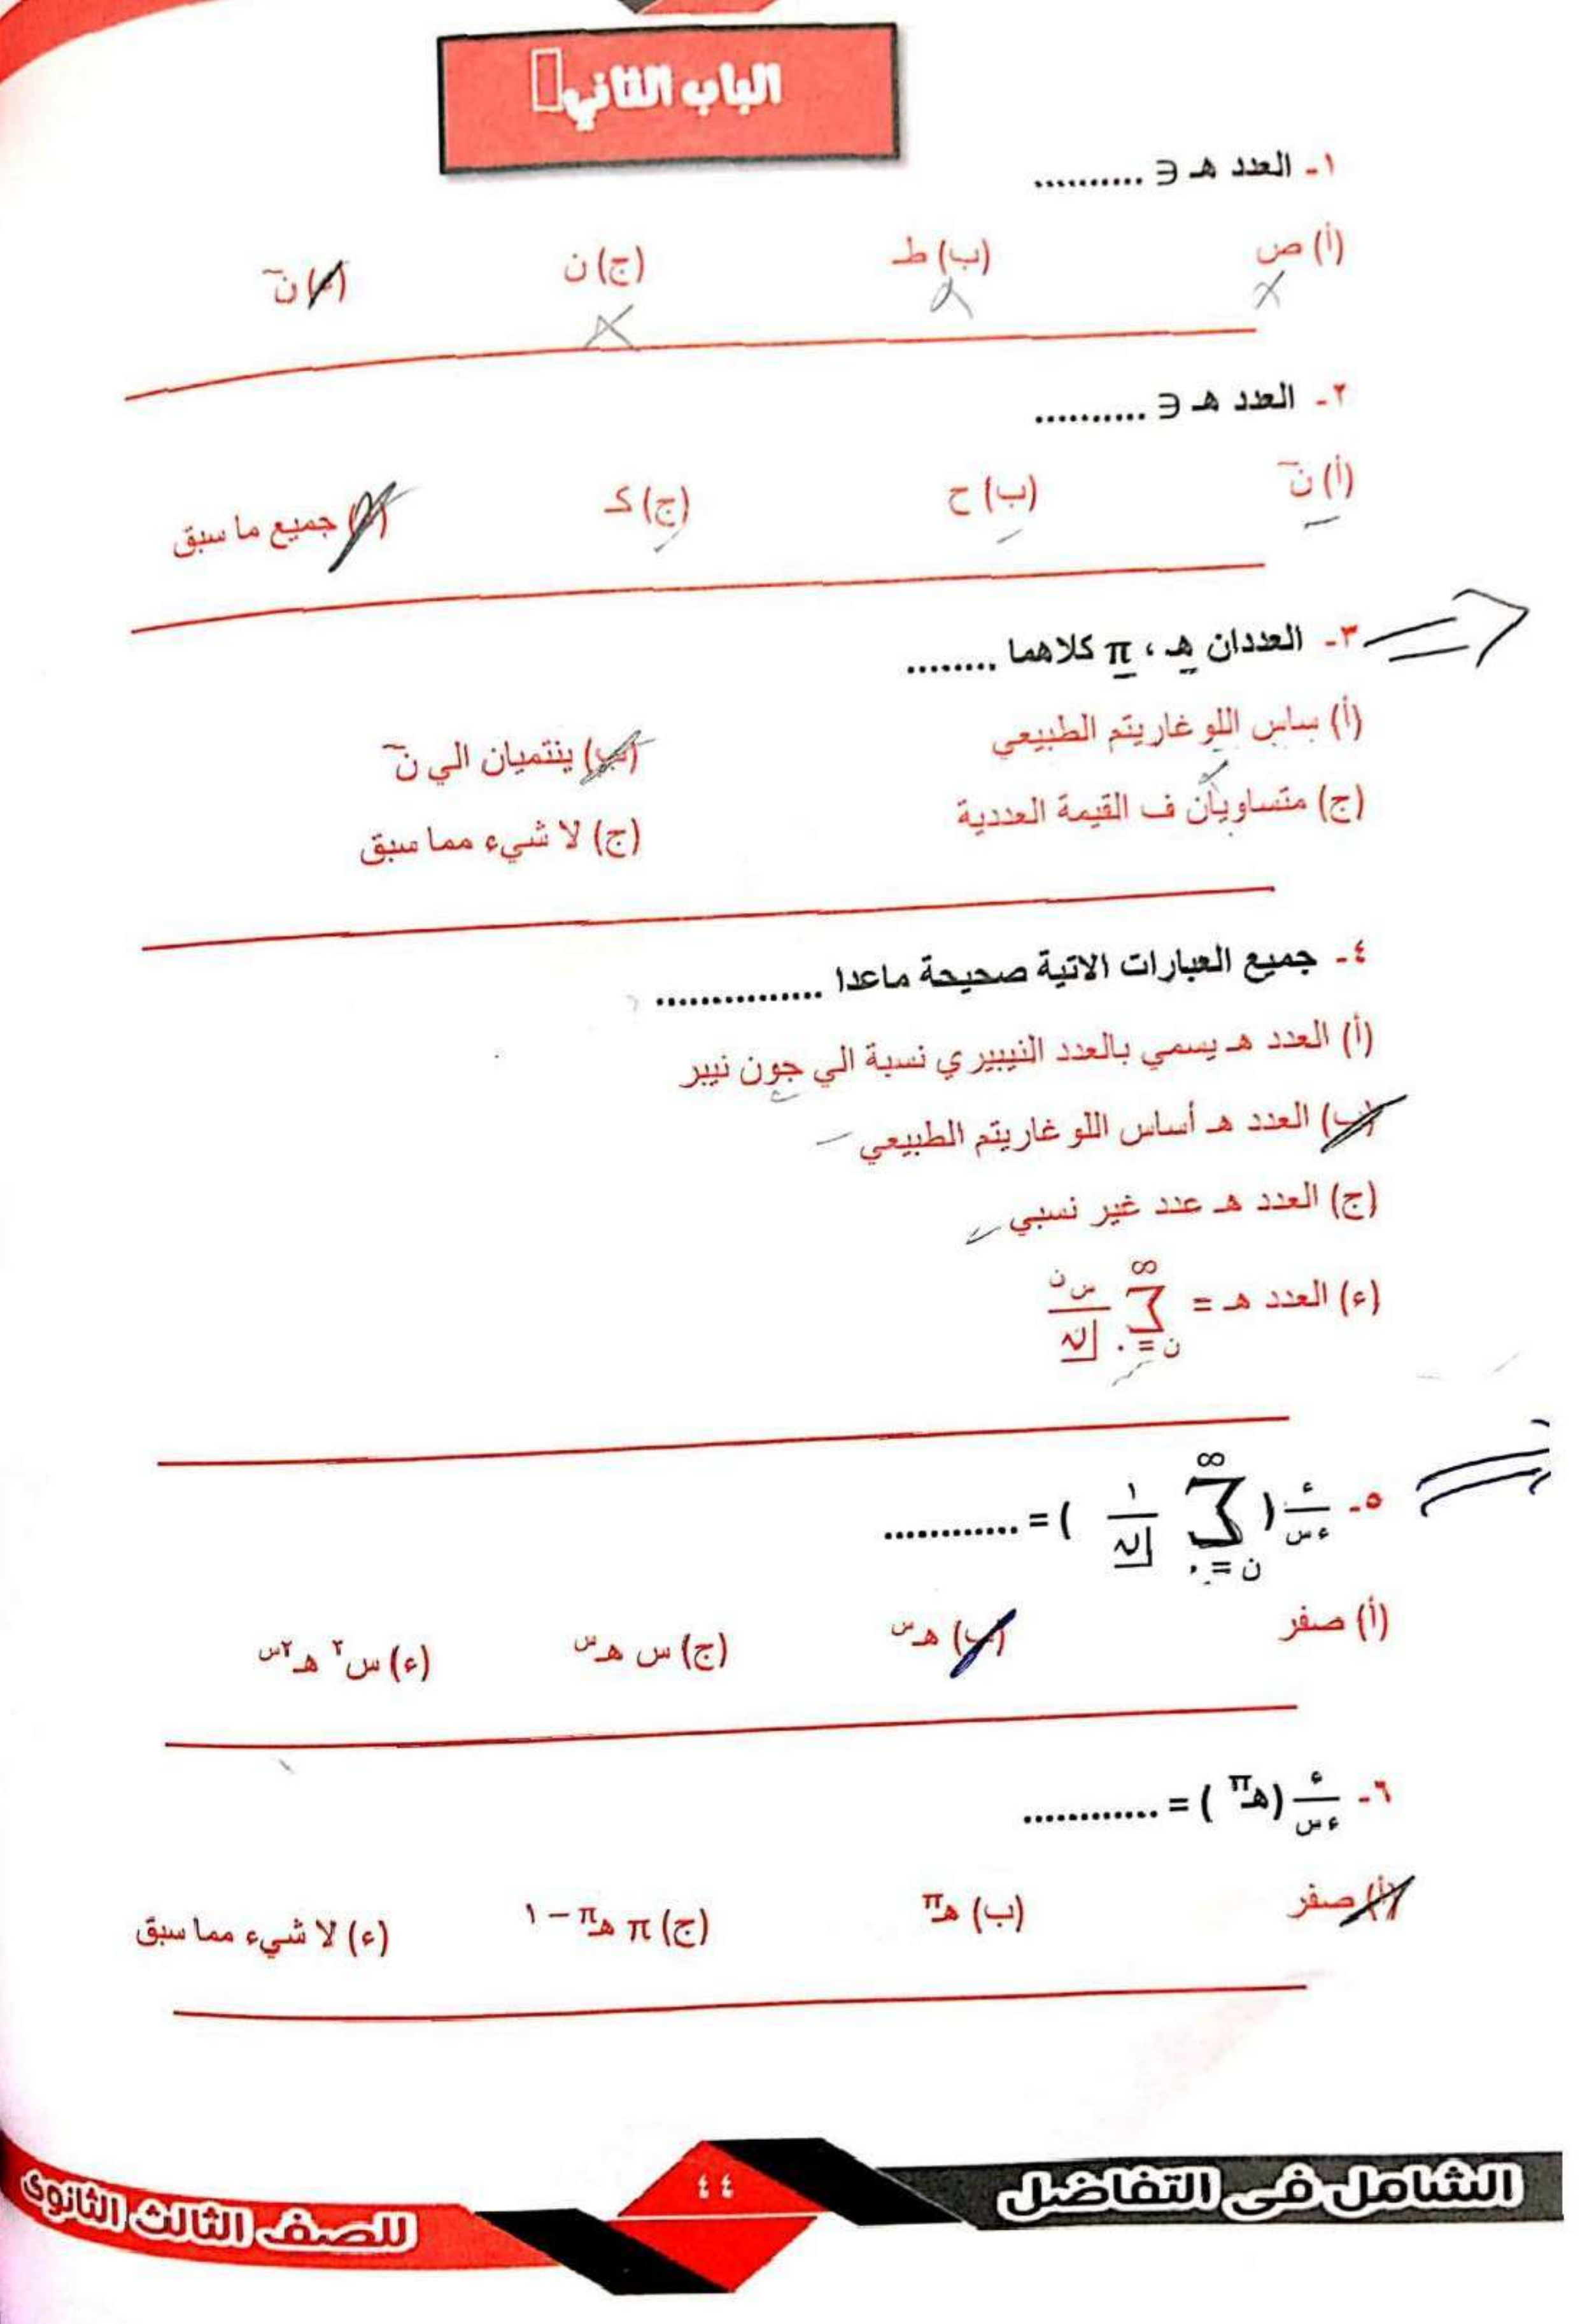 الباب الثاني
١- العدد هـ ∈ ..........
(أ) ص (ب) ط (ج) ن (ء) نَ
٢- العدد هـ ∈ ..........
(أ) نَ (ب) ح (ج) كـ (ء) جميع ما سبق
٣- العددان هـ ، π كلاهما ........
(أ) ساس اللوغاريتم الطبيعي (ب) ينتميان الي نَ
(ج) متساويان ف القيمة العددية (ج) لا شيء مما سبق
٤- جميع العبارات الاتية صحيحة ماعدا ...............
(أ) العدد هـ يسمي بالعدد النيبيري نسبة الي جون نيبر
(ب) العدد هـ أساس اللوغاريتم الطبيعي
(ج) العدد هـ عدد غير نسبي
(ء) العدد هـ = ∞ Σ ن=٠ س ن / ن
٥- ء/ء س ( ∞ Σ ن=٠ ١/ن ) = ............
(أ) صفر (ب) هـ س (ج) س هـ س (ء) س٢ هـ ٢س
٦- ء/ء س (هـ π ) = ............
(أ) صفر (ب) هـ π (ج) π هـ π − ١ (ء) لا شيء مما سبق
الشامل فى التفاضل
٤٤
للصف الثالث الثانوى